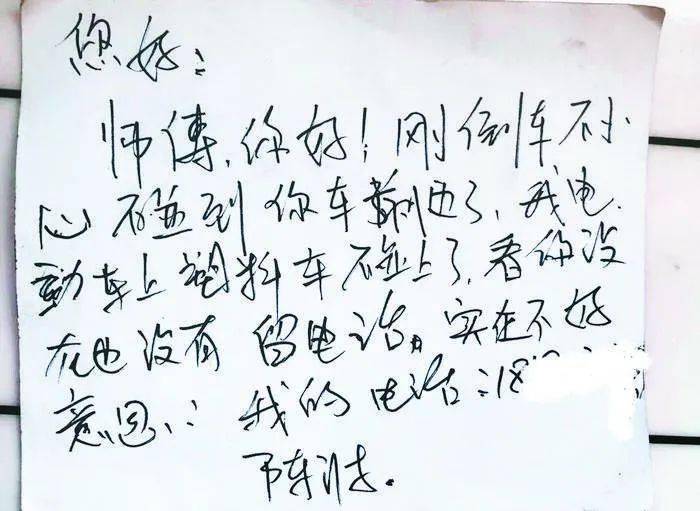 您好：
师傅，你好！刚倒车不小
心碰到你车剐边了，我电
动车上塑料车碰上了，看你没
在也没有留电话，实在不好
意思，：我的电话：18
陈